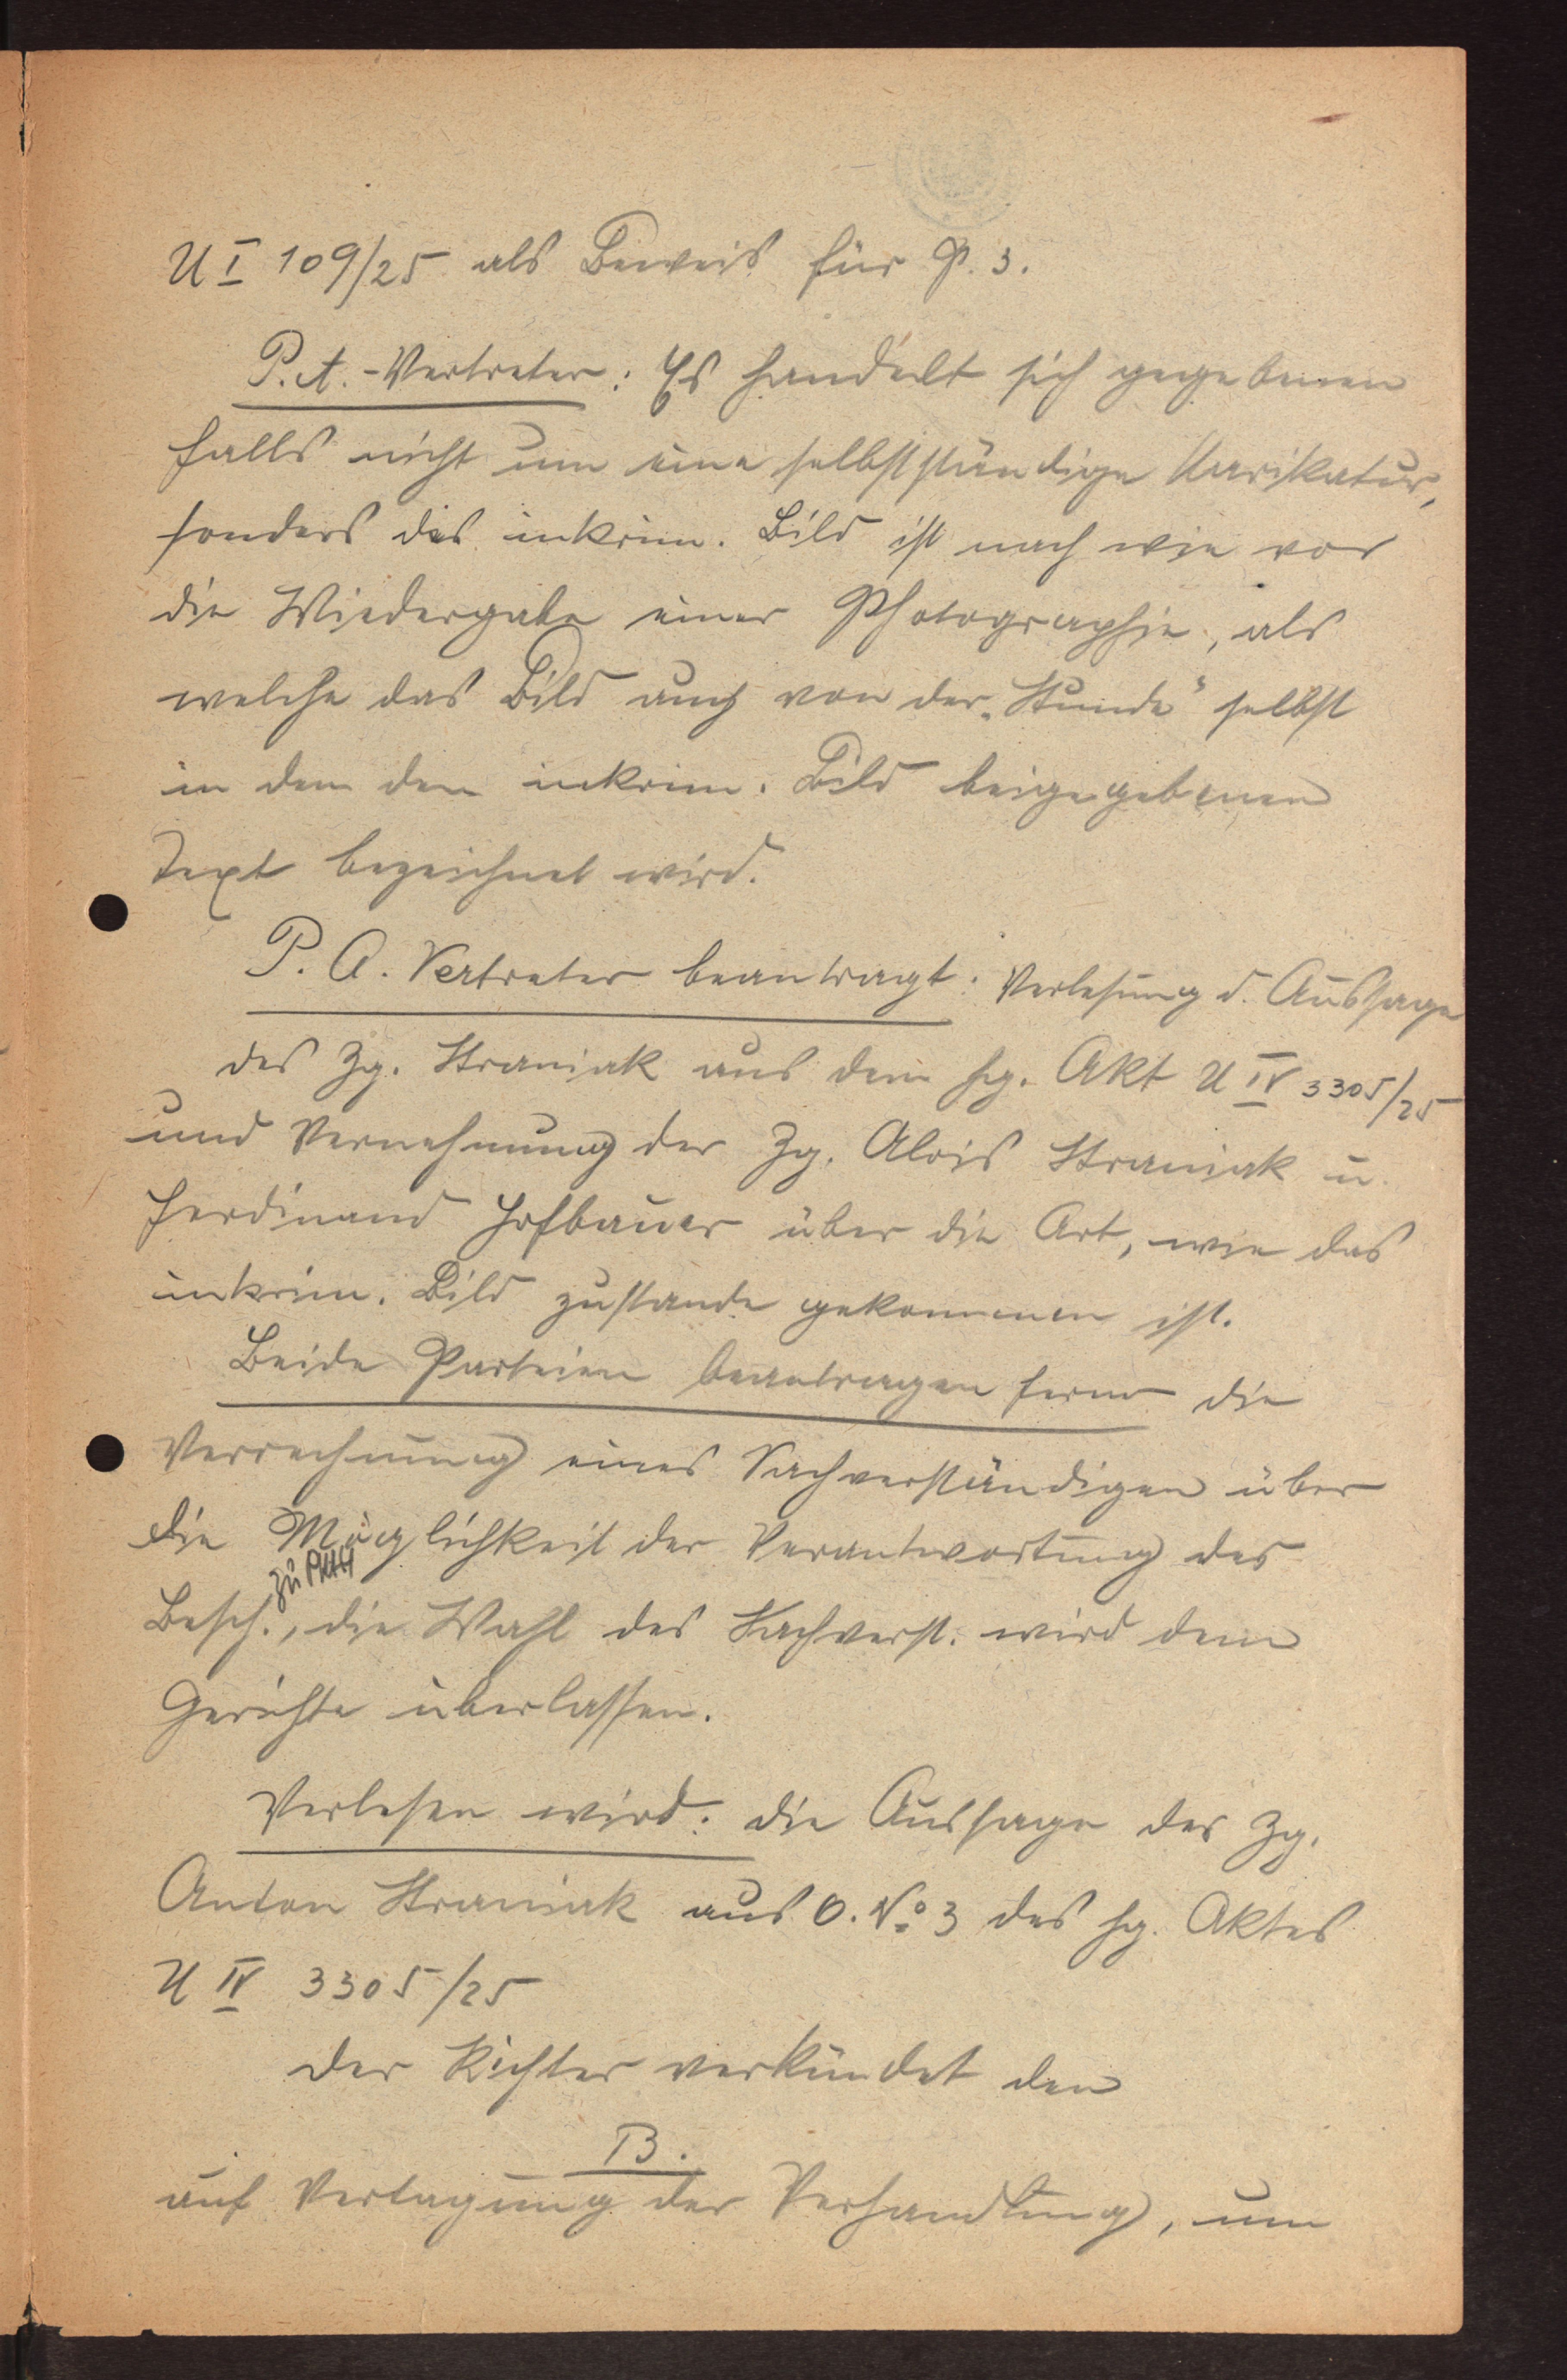 U I 109/25 als Beweis für P. 3.
P. A.-Vertreter: Es handelt sich gegebenen
falls nicht um eine selbstständige Karikatur,
sonders das inkrim. Bild ist nach wie vor
die Wiedergabe einer Photographie, als
welche das Bild auch von der „Stunde" selbst
in dem den inkrim. Bild beigegebenen
Text bezeichnet wird.
P. A. Vertreter beantragt: Verlesung d. Aussage
des Zg. Straniak aus dem hg. Akt U IV 3305/25
und Vernehmung der Zg. Alois Straniak u.
Ferdinand Hofbauer über die Art, wie das
inkrim. Bild zustande gekommen ist.
Beide Parteien beantragen ferner die
Vernehmung eines Sachverständigen über
die Möglichkeit der Verantwortung des
zu
Besch., die Wahl des Sachverst. wird dem
Gerichte überlassen.
Verlesen wird: die Aussage des Zg.
Anton Straniak aus O. No 3 des hg. Aktes
U IV 3305/25
Der Richter verkündet den
B.
auf Vertagung der Verhandlung, um